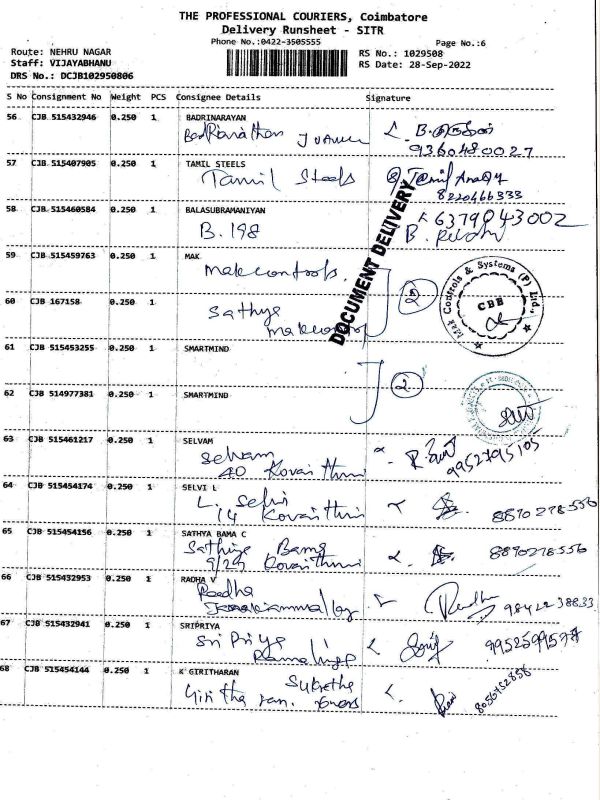 THE PROFESSIONAL COURIERS, Coimbatore
Delivery Runsheet - SITR
Phone No.:0422-3505555
Page No.:6
Route: NEHRU NAGAR
RS No.: 1029508
Staff: VIJAYABHANU
RS Date: 28-Sep-2022
DRS No.: DCJB102950806
S No Consignment No Weight PCS Consignee Details Signature
56 CJB 515432946 0.250 1 BADRINARAYAN
9360480027
57 CJB 515407905 0.250 1 TAMIL STEELS
Tamil Steels
8220466333
58 CJB 515460584 0.250 1 BALASUBRAMANIYAN
6379043002
B. 198
DOCUMENT DELIVERY
59 CJB 515459763 0.250 1 MAK
Makcontrols.
2
Mak Controls & Systems (P) Ltd.,
CBB
60 CJB 167158 0.250 1
Sathya
makcontrol
61 CJB 515453255 0.250 1 SMARTMIND
2
62 CJB 514977381 0.250 1 SMARTMIND
63 CJB 515461217 0.250 1 SELVAM
Selvam
40 Kovaithiru
9952795105
64 CJB 515454174 0.250 1 SELVI L
L. Selvi
14 Kovaithiru
8890278556
65 CJB 515454156 0.250 1 SATHYA BAMA C
Sathiya Bama
9/29 Kovaithiru
8890278556
66 CJB 515432953 0.250 1 RADHA V
Radha
9842238833
67 CJB 515432941 0.250 1 SRIPRIYA
Sri Priya
Ramalinga
68 CJB 515454144 0.250 1 K GIRITHARAN
Giritharan.
8056752858